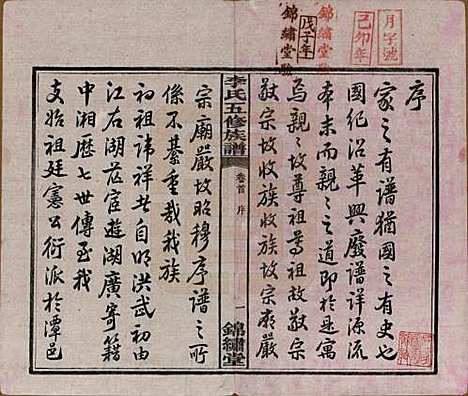 序
家之有譜猶國之有史也
國紀沿革興廢譜詳源流
本末而親親之道即於是寓
焉親親故尊祖尊祖故敬宗
敬宗故收族收族故宗廟嚴
李氏五修族譜
卷首 序
一 錦繡堂
宗廟嚴故昭穆序譜之所
係不綦重哉我族
初祖諱祥公自明洪武初由
江右湖茫宦遊湖廣寄籍
中湘歷七世傳至我
支始祖廷憲公衍派於潭邑
月字號
己卯年
錦繡堂
戊子年
錦繡堂